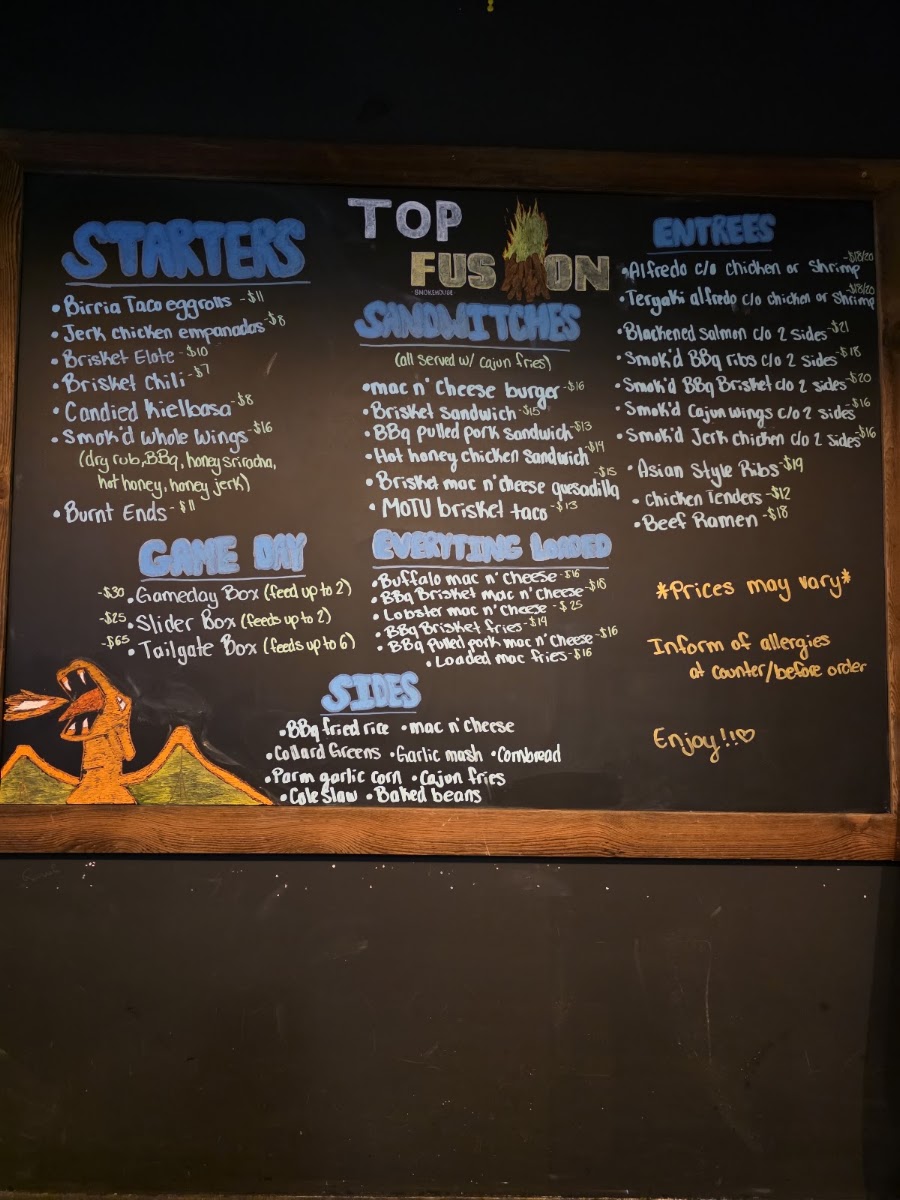 TOP
FUSION
SMOKEHOUSE
STARTERS
• Birria Taco eggrolls -$11
• Jerk chicken empanadas -$8
• Brisket Elote -$10
• Brisket Chili -$7
• Candied Kielbasa -$8
• Smok'd Whole Wings -$16
(dry rub, BBQ, honey sriracha,
hot honey, honey jerk)
• Burnt Ends -$11
GAME DAY
-$30 • Gameday Box (feed up to 2)
-$25 • Slider Box (feeds up to 2)
-$65 • Tailgate Box (feeds up to 6)
SANDWITCHES
(all served w/ cajun fries)
• mac n' cheese burger -$16
• Brisket sandwich -$15
• BBq pulled pork sandwich -$13
• Hot honey chicken sandwich -$14
• Brisket mac n' cheese quesadilla -$15
• MOTU brisket taco -$13
EVERYTING LOADED
• Buffalo mac n' cheese -$16
• BBq Brisket mac n' cheese -$18
• Lobster mac n' cheese -$25
• BBq Brisket fries -$19
• BBq Pulled pork mac n' cheese -$16
• Loaded mac fries -$16
SIDES
• BBq fried rice • mac n' cheese
• Collard Greens • Garlic mash • Cornbread
• Parm garlic corn • Cajun fries
• Cole Slaw • Baked beans
ENTREES
• Alfredo c/o chicken or Shrimp -$18/20
• Teryaki alfredo c/o chicken or Shrimp -$18/20
• Blackened Salmon c/o 2 sides -$21
• Smok'd BBq ribs c/o 2 sides -$18
• Smok'd BBq Brisket c/o 2 sides -$20
• Smok'd Cajun wings c/o 2 sides -$16
• Smok'd Jerk chicken c/o 2 sides -$16
• Asian Style Ribs -$19
• chicken Tenders -$12
• Beef Ramen -$18
*Prices may vary*
Inform of allergies
at counter/before order
Enjoy!!